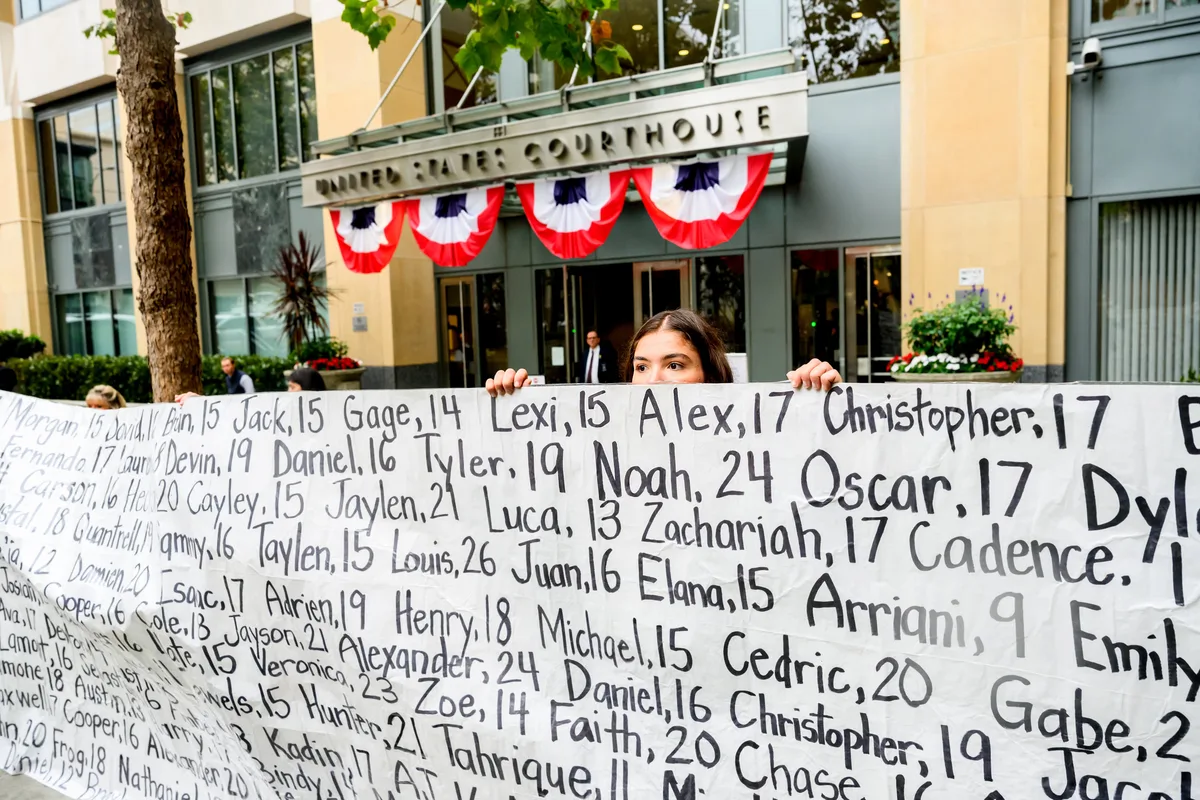 UNITED STATES COURTHOUSE
Morgan, 15 David, 15 Jack, 15 Gage, 14 Lexi, 15 Alex, 17 Christopher, 17 E
Fernando, 17 Devin, 19 Daniel, 16 Tyler, 19 Noah, 24 Oscar, 17 Dyl
Carson, 16 20 Cayley, 15 Jaylen, 21 Luca, 13 Zachariah, 17 Cadence, 1
18 Quantrell, 19 16 Taylen, 15 Louis, 26 Juan, 16 Elana, 15 Arriani, 9 Emily
12 Damien, 20 Isaac, 17 Adrien, 19 Henry, 18 Michael, 15 Cedric, 20 Gabe, 2
Cooper, 16 Cole, 13 Jayson, 21 Alexander, 24 Daniel, 16 Christopher, 19 Jacob
Ava, 17 Nate, 15 Veronica, 23 Zoe, 14 Faith, 20 Chase, 16
Lamot, 16 15 Hunter, 21 Tahrique, 11
18 Austin, Kadin, 17 A.J.
7 Cooper, 16 Alexander, 20
20 Frog, 18 Nathaniel
Daniel, 12